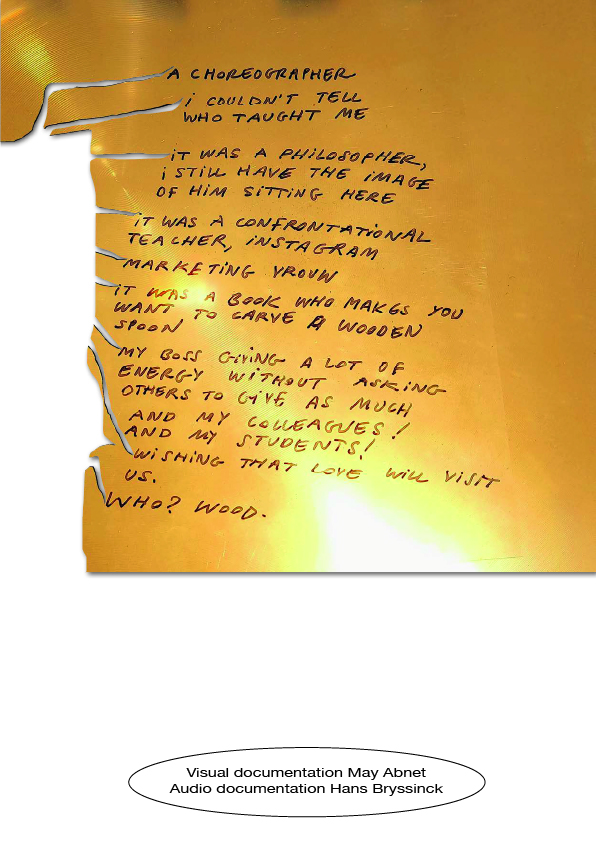 A CHOREOGRAPHER
i COULDN'T TELL
WHO TAUGHT ME
iT WAS A PHiLOSOPHER,
i STiLL HAVE THE iMAGE
OF HiM SiTTiNG HERE
iT WAS A CONFRONTATiONAL
TEACHER, iNSTAGRAM
MARKETiNG VROUW
iT WAS A BOOK WHO MAKES YOU
WANT TO CARVE A WOODEN
SPOON
MY BOSS GiViNG A LOT OF
ENERGY WiTHOUT ASKiNG
OTHERS TO GiVE AS MUCH
AND MY COLLEAGUES!
AND MY STUDENTS!
WiSHiNG THAT LOVE WiLL ViSiT
US.
WHO? WOOD.
Visual documentation May Abnet
Audio documentation Hans Bryssinck